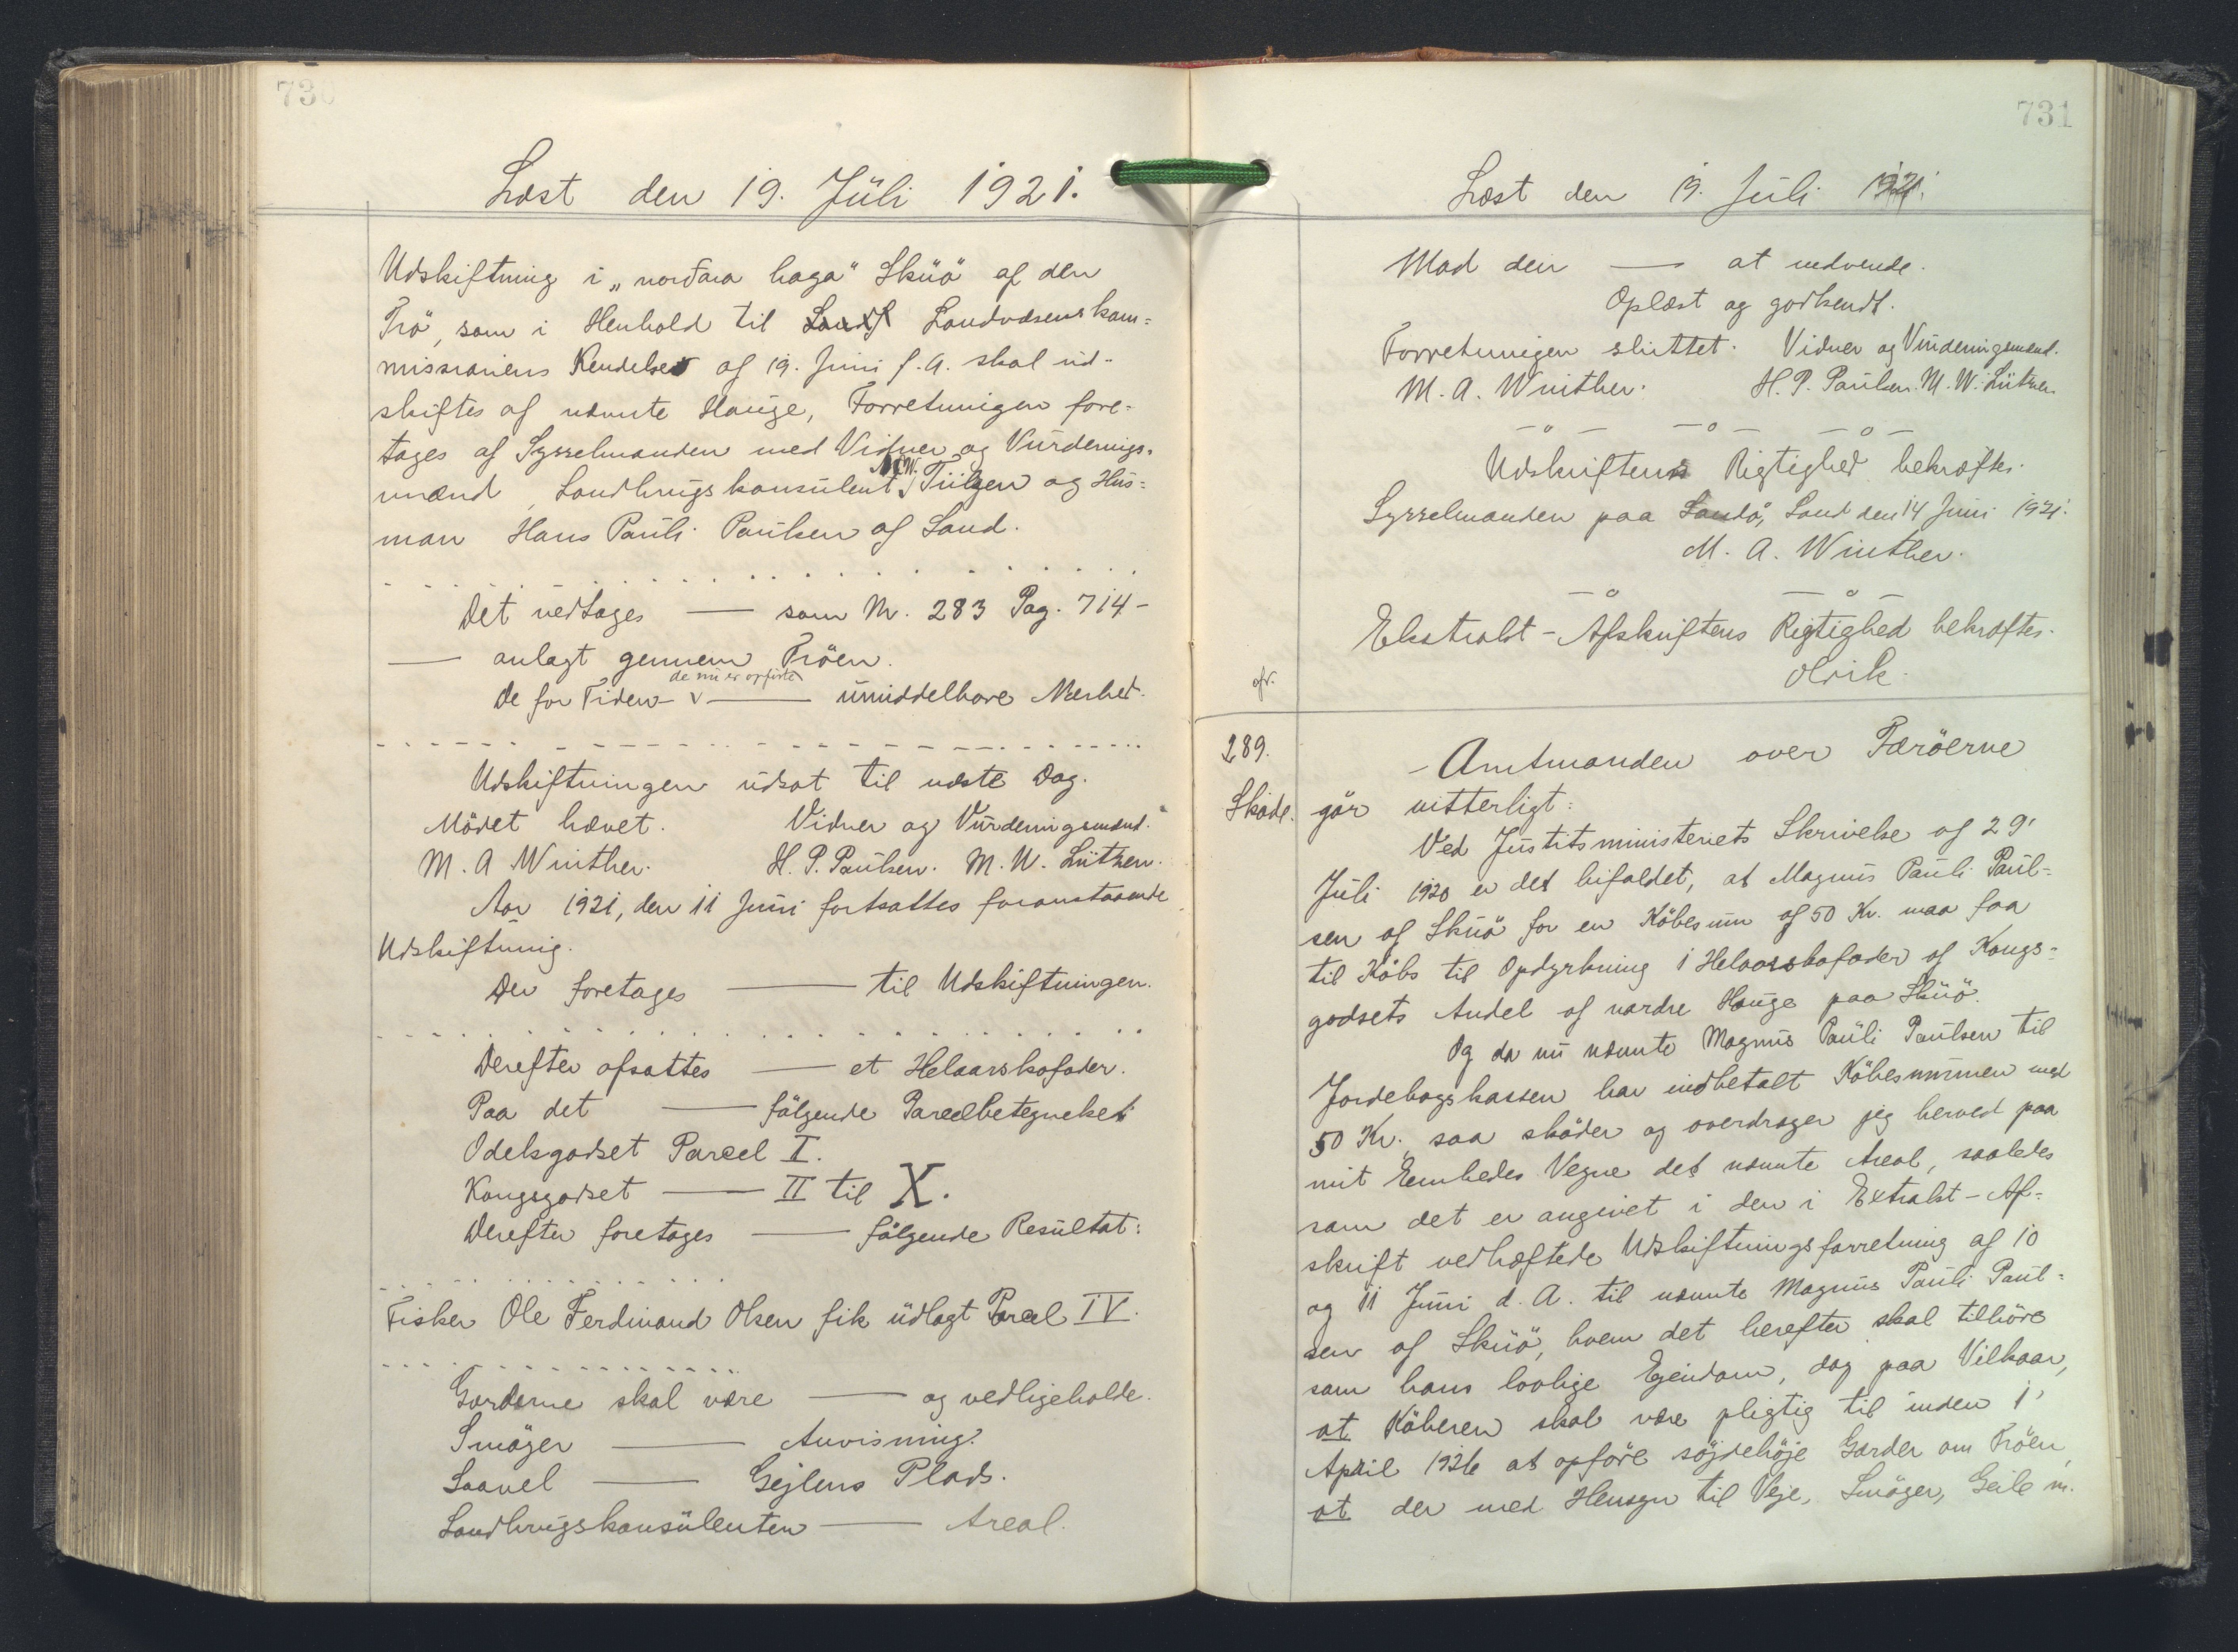 730
Læst den 19. Juli 1921.
Udskiftning i „norðara haga" Skuö af den
Trö, som i Henhold til Landv Landvæsenskom-
missionens Kendelse af 19. Juni f. A. skal ud-
skiftes af nævnte Hauge, Forretningen fore-
tages af Sysselmanden med Vidner og Vurderings-
M.W.
mænd, Landbrugskonsulent Lützen og Hus-
man Hans Pauli Paulsen af Sand.
Det vedtages — som Nr. 283 Pag. 714 -
— anlagt gennem Tröen.
de nu er opförte
De for Tiden - v — umiddelbare Nærhed.
Udskiftningen udsat til næste Dag.
Mödet hævet. Vidner og Vurderingsmænd.
M. A Winther. H. P. Paulsen. M. W. Lützen.
Aar 1921, den 11 Juni fortsattes foranstaaende
Udskiftning.
Der foretages — til Udskiftningen.
Derefter afsattes — et Helaarskofoder.
Paa det — fölgende Parcelbetegnelse:
Odelsgodset Parcel I.
Kongsgodset — II til X.
Derefter foretages — fölgende Resultat:
Fisker Ole Ferdinand Olsen fik udlagt Parcel IV.
Gærderne skal være — og vedligeholde.
Smöger — Anvisning.
Saavel — Gejlens Plads.
Landbrugskonsulenten — Areal.
731
Læst den 19. Juli 1921.
Mod den — at nedvende.
Oplæst og godkendt.
Forretningen sluttet. Vidner og Vurderingsmænd.
M. A. Winther. H. P. Paulsen. M. W. Lützen
Udskriftens Rigtighed bekræftes.
Sysselmanden paa Sandö, Sand den 14 Juni 1921.
M. A. Winther.
Ekstrakt-Afskriftens Rigtighed bekræftes.
Olrik.
289. Amtmanden over Færöerne
Sköde. gör vitterligt:
Ved Justitsministeriets Skrivelse af 29'
Juli 1920 er det bifaldet, at Magnus Pauli Paul-
sen af Skuö for en Köbesum af 50 Kr. maa faa
til Köbs til Opdyrkning 1 Helaarskofoder af Kongs-
godsets Andel af nordre Hauge paa Skuö.
Og da nu nævnte Magnus Pauli Paulsen til
Jordebogskassen har indbetalt Köbesummen med
50 Kr., saa sköder og overdrager jeg herved paa
mit Embedes Vegne det nævnte Areal, saaledes
som det er angivet i den i Extrakt-Af-
skrift vedhæftede Udskiftningsforretning af 10
og 11 Juni d. A. til nævnte Magnus Pauli Paul-
sen af Skuö, hvem det herefter skal tilhöre
som hans lovlige Ejendom, dog paa Vilkaar,
at Köberen skal være pligtig til inden 1'
April 1926 at opföre söjdehöje Gærder om Tröen,
at der med Hensyn til Veje, Smöger, Geile m.